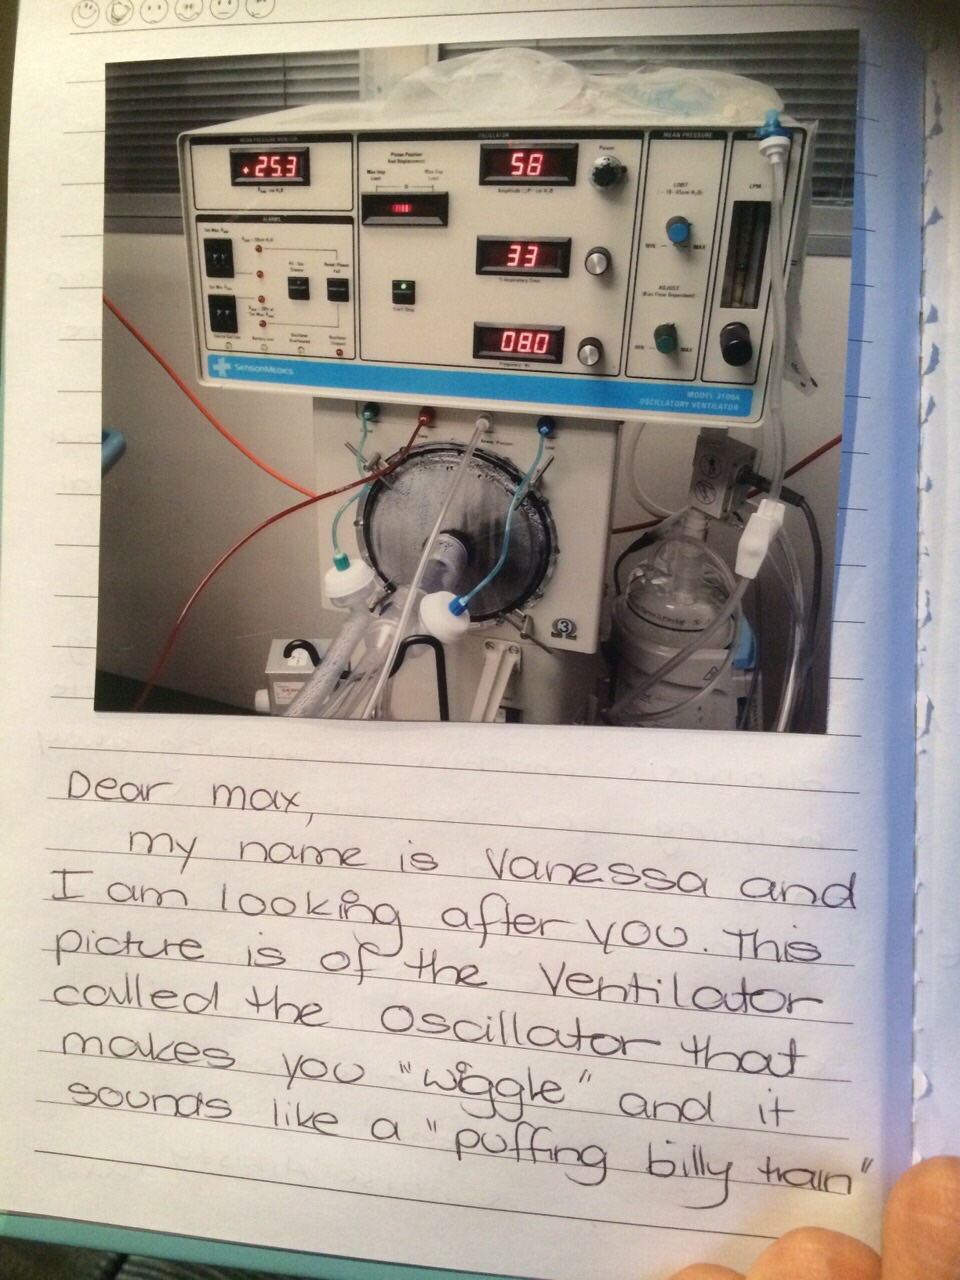 MEAN PRESSURE MONITOR
OSCILLATOR
MEAN PRESSURE
+25.3
58
Power
33
08.0
ALARMS
LIMIT
MIN
MAX
ADJUST
MIN
MAX
LPM
Start/Stop
% Inspiratory Time
Frequency-Hz
SENSORMEDICS
MODEL 3100A
OSCILLATORY VENTILATOR
3
Dear max,
my name is Vanessa and
I am looking after you. This
picture is of the Ventilator
called the Oscillator that
makes you "wiggle" and it
sounds like a "puffing billy train"